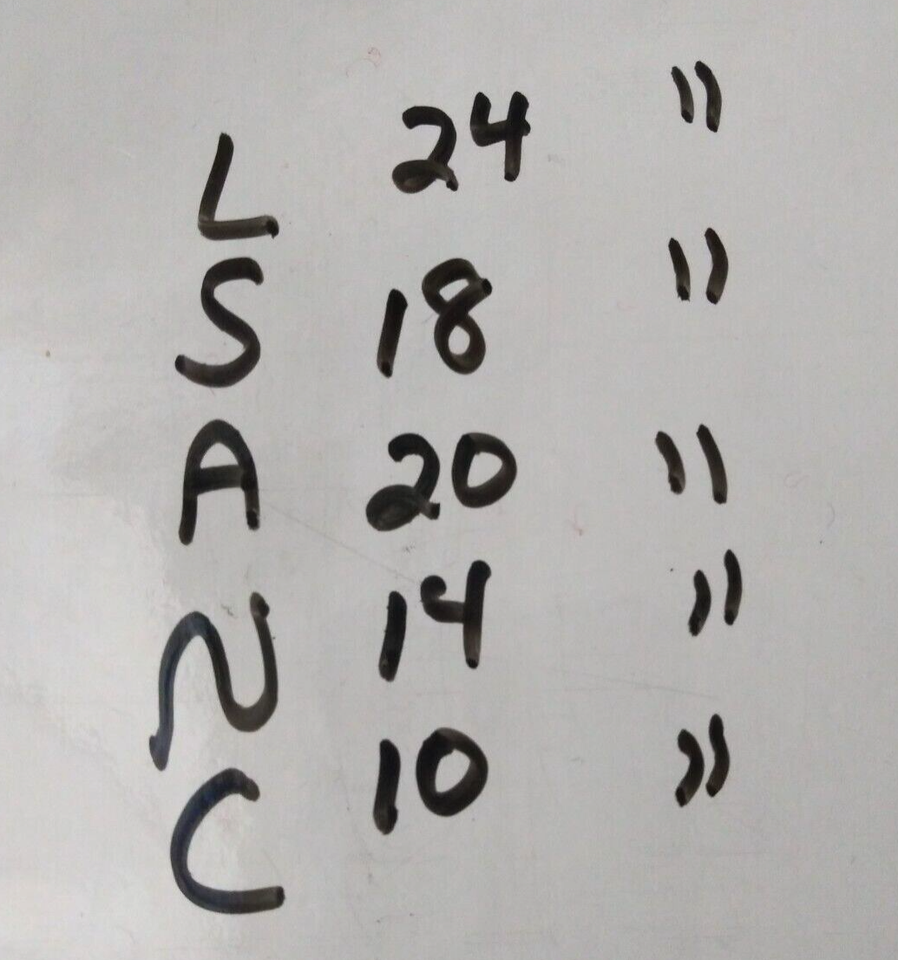 L 24 "
S 18 "
A 20 "
N 14 "
C 10 "